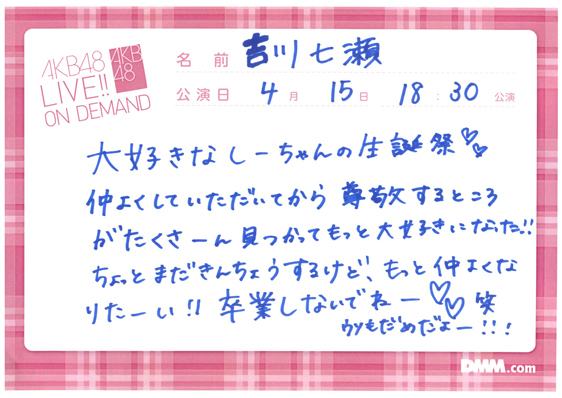 AKB48
LIVE!!
ON DEMAND
AKB
48
名前 吉川七瀬
公演日 4月 15日 18:30 公演
大好きなしーちゃんの生誕祭♡♡
仲よくしていただいてから 尊敬するところ
がたくさーん見つかってもっと大好きになった!!
ちょっとまだきんちょうするけど、もっと仲よくな
りたーい!! 卒業しないでねー♡♡笑
ウソもだめだよー!!!
DMM.com